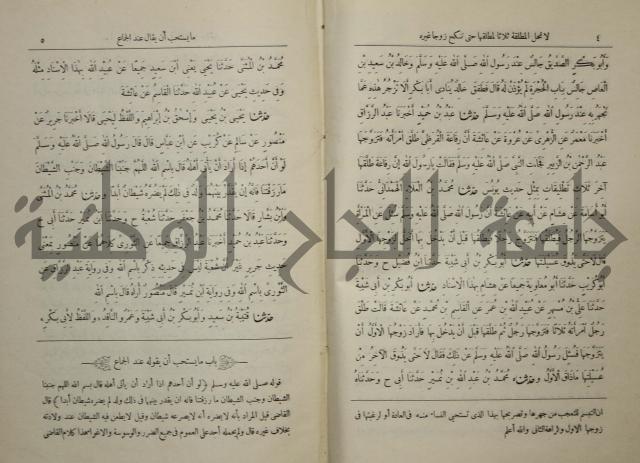 ٤
لا تحل المطلقة ثلاثا لمطلقها حتى تنكح زوجا غيره
وَأَبُو بَكْرٍ الصِّدِّيقُ جَالِسٌ عِنْدَ رَسُولِ اللهِ صَلَّى اللهُ عَلَيْهِ وَسَلَّمَ وَخَالِدُ بْنُ سَعِيدِ بْنِ
الْعَاصِ جَالِسٌ بِبَابِ الْحُجْرَةِ لَمْ يُؤْذَنْ لَهُ قَالَ فَطَفِقَ خَالِدٌ يُنَادِى أَبَا بَكْرٍ أَلَا تَزْجُرُ هَذِهِ عَمَّا
تَجْهَرُ بِهِ عِنْدَ رَسُولِ اللهِ صَلَّى اللهُ عَلَيْهِ وَسَلَّمَ حدثنا عَبْدُ بْنُ حُمَيْدٍ أَخْبَرَنَا عَبْدُ الرَّزَّاقِ
أَخْبَرَنَا مَعْمَرٌ عَنِ الزُّهْرِىِّ عَنْ عُرْوَةَ عَنْ عَائِشَةَ أَنَّ رِفَاعَةَ الْقُرَظِىَّ طَلَّقَ امْرَأَتَهُ فَتَزَوَّجَهَا
عَبْدُ الرَّحْمَنِ بْنُ الزَّبِيرِ فَجَاءَتِ النَّبِىَّ صَلَّى اللهُ عَلَيْهِ وَسَلَّمَ فَقَالَتْ يَا رَسُولَ اللهِ إِنَّ رِفَاعَةَ طَلَّقَهَا
آخِرَ ثَلَاثِ تَطْلِيقَاتٍ بِمِثْلِ حَدِيثِ يُونُسَ حدثنا مُحَمَّدُ بْنُ الْعَلَاءِ الْهَمْدَانِىُّ حَدَّثَنَا
أَبُو أُسَامَةَ عَنْ هِشَامٍ عَنْ أَبِيهِ عَنْ عَائِشَةَ أَنَّ رَسُولَ اللهِ صَلَّى اللهُ عَلَيْهِ وَسَلَّمَ سُئِلَ عَنِ الْمَرْأَةِ
يَتَزَوَّجُهَا الرَّجُلُ فَيُطَلِّقُهَا فَتَتَزَوَّجُ رَجُلًا فَيُطَلِّقُهَا قَبْلَ أَنْ يَدْخُلَ بِهَا أَتَحِلُّ لِزَوْجِهَا الْأَوَّلِ
قَالَ لَا حَتَّى يَذُوقَ عُسَيْلَتَهَا حدثنا أَبُو بَكْرِ بْنُ أَبِى شَيْبَةَ حَدَّثَنَا ابْنُ فُضَيْلٍ ح وَحَدَّثَنَا
أَبُو كُرَيْبٍ حَدَّثَنَا أَبُو مُعَاوِيَةَ جَمِيعًا عَنْ هِشَامٍ بِهَذَا الْإِسْنَادِ حدثنا أَبُو بَكْرِ بْنُ أَبِى شَيْبَةَ
حَدَّثَنَا عَلِىُّ بْنُ مُسْهِرٍ عَنْ عُبَيْدِ اللهِ بْنِ عُمَرَ عَنِ الْقَاسِمِ بْنِ مُحَمَّدٍ عَنْ عَائِشَةَ قَالَتْ طَلَّقَ
رَجُلٌ امْرَأَتَهُ ثَلَاثًا فَتَزَوَّجَهَا رَجُلٌ ثُمَّ طَلَّقَهَا قَبْلَ أَنْ يَدْخُلَ بِهَا فَأَرَادَ زَوْجُهَا الْأَوَّلُ أَنْ
يَتَزَوَّجَهَا فَسُئِلَ رَسُولُ اللهِ صَلَّى اللهُ عَلَيْهِ وَسَلَّمَ عَنْ ذَلِكَ فَقَالَ لَا حَتَّى يَذُوقَ الْآخِرُ مِنْ
عُسَيْلَتِهَا مَا ذَاقَ الْأَوَّلُ وحدثناه مُحَمَّدُ بْنُ عَبْدِ اللهِ بْنِ نُمَيْرٍ حَدَّثَنَا أَبِى ح وَحَدَّثَنَاهُ
ان التبسم للتعجب من جهرها وتصريحها بهذا الذى تستحى النساء منه فى العادة أو لرغبتها فى
زوجها الأول وكراهة الثانى والله أعلم
ما يستحب أن يقال عند الجماع
٥
مُحَمَّدُ بْنُ الْمُثَنَّى حَدَّثَنَا يَحْيَى يَعْنِى ابْنَ سَعِيدٍ جَمِيعًا عَنْ عُبَيْدِ اللهِ بِهَذَا الْإِسْنَادِ مِثْلَهُ
وَفِى حَدِيثِ يَحْيَى عَنْ عُبَيْدِ اللهِ حَدَّثَنَا الْقَاسِمُ عَنْ عَائِشَةَ
حدثنا يَحْيَى بْنُ يَحْيَى وَإِسْحَقُ بْنُ إِبْرَاهِيمَ وَاللَّفْظُ لِيَحْيَى قَالَا أَخْبَرَنَا جَرِيرٌ عَنْ
مَنْصُورٍ عَنْ سَالِمٍ عَنْ كُرَيْبٍ عَنِ ابْنِ عَبَّاسٍ قَالَ قَالَ رَسُولُ اللهِ صَلَّى اللهُ عَلَيْهِ وَسَلَّمَ
لَوْ أَنَّ أَحَدَهُمْ إِذَا أَرَادَ أَنْ يَأْتِىَ أَهْلَهُ قَالَ بِاسْمِ اللهِ اللَّهُمَّ جَنِّبْنَا الشَّيْطَانَ وَجَنِّبِ الشَّيْطَانَ
مَا رَزَقْتَنَا فَإِنَّهُ إِنْ يُقَدَّرْ بَيْنَهُمَا وَلَدٌ فِى ذَلِكَ لَمْ يَضُرَّهُ شَيْطَانٌ أَبَدًا وحدثنا مُحَمَّدُ بْنُ الْمُثَنَّى
وَابْنُ بَشَّارٍ قَالَا حَدَّثَنَا مُحَمَّدُ بْنُ جَعْفَرٍ حَدَّثَنَا شُعْبَةُ ح وَحَدَّثَنَا ابْنُ نُمَيْرٍ حَدَّثَنَا أَبِى ح
وَحَدَّثَنَا عَبْدُ بْنُ حُمَيْدٍ أَخْبَرَنَا عَبْدُ الرَّزَّاقِ جَمِيعًا عَنِ الثَّوْرِىِّ كِلَاهُمَا عَنْ مَنْصُورٍ بِمَعْنَى
حَدِيثِ جَرِيرٍ غَيْرَ أَنَّ شُعْبَةَ لَيْسَ فِى حَدِيثِهِ ذِكْرُ بِاسْمِ اللهِ وَفِى رِوَايَةِ عَبْدِ الرَّزَّاقِ عَنِ
الثَّوْرِىِّ بِاسْمِ اللهِ وَفِى رِوَايَةِ ابْنِ نُمَيْرٍ قَالَ مَنْصُورٌ أُرَاهُ قَالَ بِاسْمِ اللهِ
حدثنا قُتَيْبَةُ بْنُ سَعِيدٍ وَأَبُو بَكْرِ بْنُ أَبِى شَيْبَةَ وَعَمْرٌو النَّاقِدُ وَاللَّفْظُ لِأَبِى بَكْرٍ
باب ما يستحب أن يقوله عند الجماع
قوله صلى الله عليه وسلم ﴿لو أن أحدهم اذا أراد أن يأتى أهله قال بسم الله اللهم جنبنا
الشيطان وجنب الشيطان ما رزقتنا فانه ان يقدر بينهما فى ذلك ولد لم يضره شيطان أبدا﴾ قال
القاضى قيل المراد بأنه لا يضره أنه لا يصرعه شيطان وقيل لا يطعن فيه الشيطان عند ولادته
بخلاف غيره قال ولم يحمله أحد على العموم فى جميع الضرر والوسوسة والاغواء هذا كلام القاضى
جامعة النجاح الوطنية